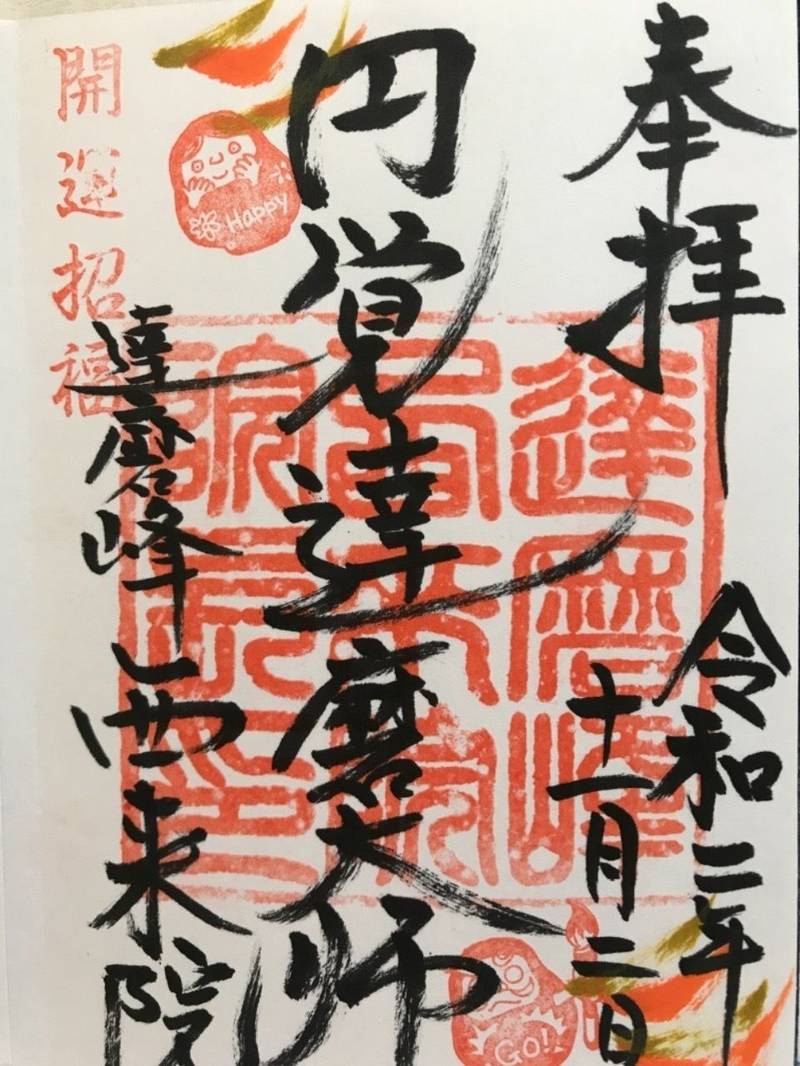 奉拝
令和二年
十一月二日
円覚達磨大師
達磨峰西来院
開運招福
Happy
GO!